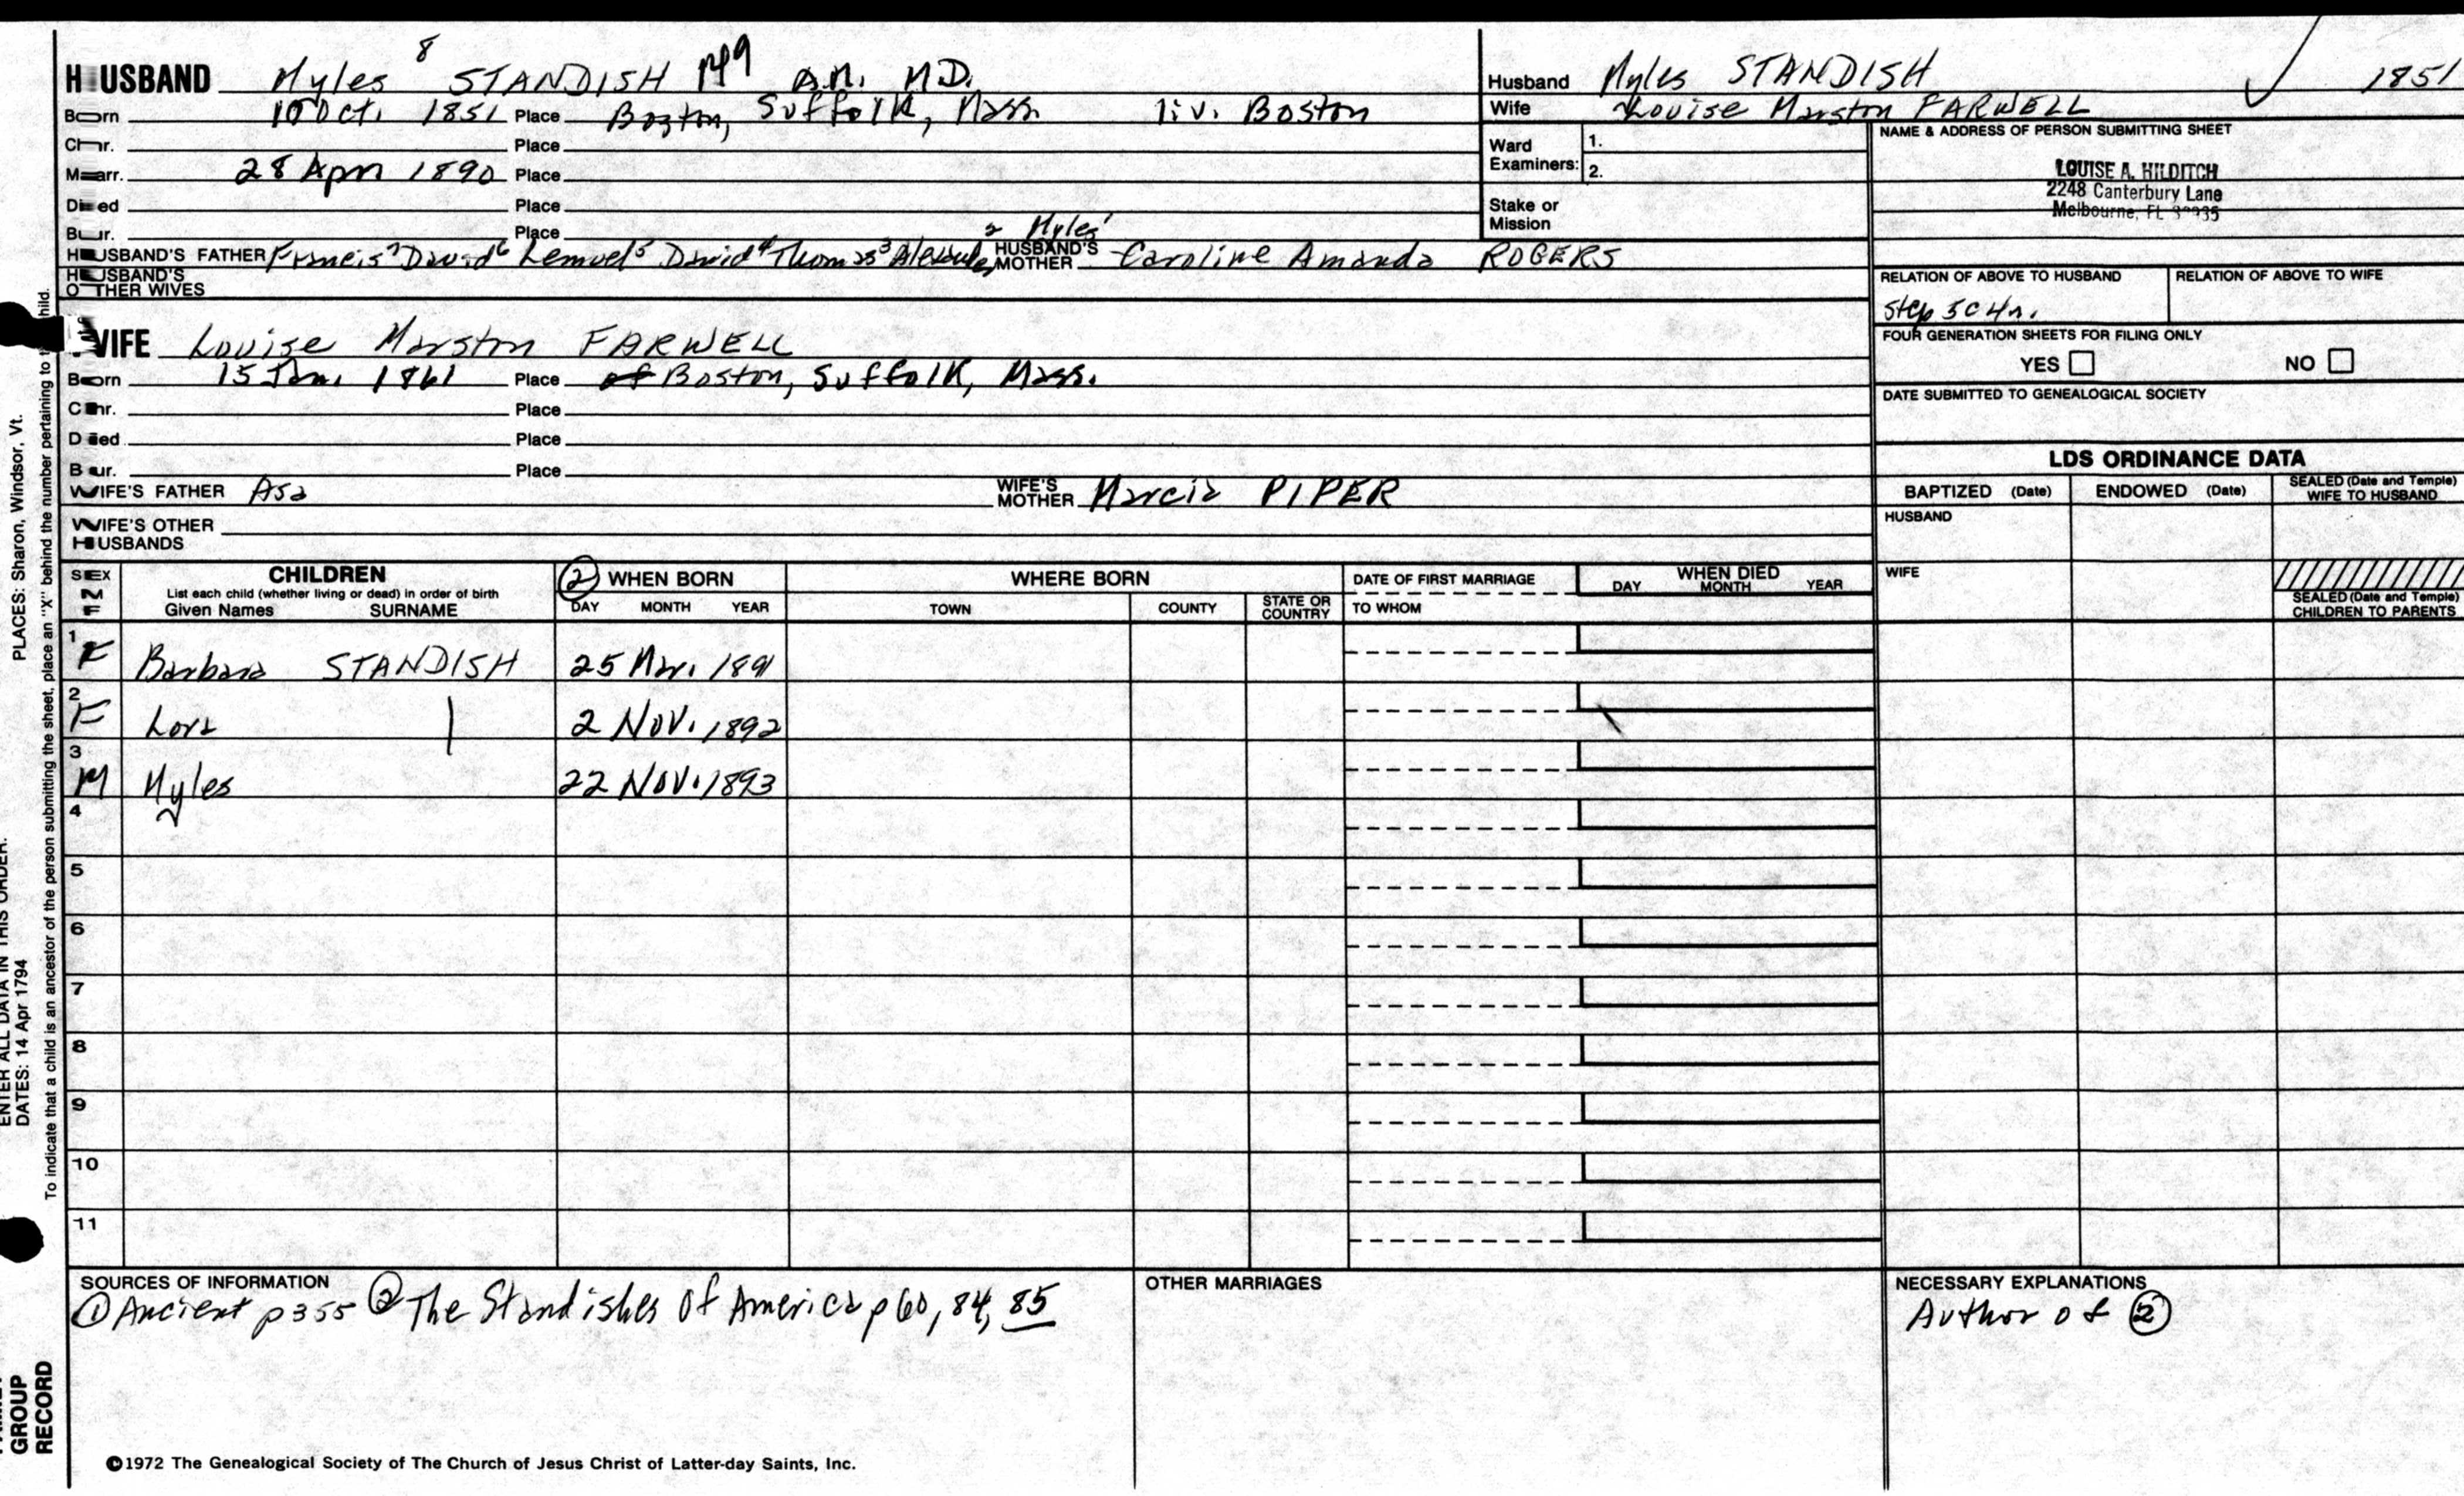 HUSBAND Myles 8 STANDISH 149 A.M. M.D.
Born 10 Oct. 1851 Place Boston, Suffolk, Mass. liv. Boston
Chr. Place
Marr. 28 Apr 1890 Place
Died Place
Bur. Place
HUSBAND'S FATHER Francis 7 David 6 Lemuel 5 David 4 Thomas 3 2 Myles 1 HUSBAND'S MOTHER Caroline Amanda ROGERS
HUSBAND'S OTHER WIVES
WIFE Louise Marston FARWELL
Born 15 Jan. 1861 Place of Boston, Suffolk, Mass.
Chr. Place
Died Place
Bur. Place
WIFE'S FATHER Asa WIFE'S MOTHER Marcia PIPER
WIFE'S OTHER HUSBANDS
Husband Myles STANDISH 1851
Wife Louise Marston FARWELL
Ward Examiners: 1.
2.
Stake or Mission
NAME & ADDRESS OF PERSON SUBMITTING SHEET
LOUISE A. HILDITCH
2248 Canterbury Lane
Melbourne, FL
RELATION OF ABOVE TO HUSBAND RELATION OF ABOVE TO WIFE
step 5C4r.
FOUR GENERATION SHEETS FOR FILING ONLY
YES NO
DATE SUBMITTED TO GENEALOGICAL SOCIETY
LDS ORDINANCE DATA
BAPTIZED (Date) ENDOWED (Date) SEALED (Date and Temple) WIFE TO HUSBAND
HUSBAND
WIFE
SEALED (Date and Temple) CHILDREN TO PARENTS
SEX M F CHILDREN (2) WHEN BORN WHERE BORN DATE OF FIRST MARRIAGE WHEN DIED
List each child (whether living or dead) in order of birth
Given Names SURNAME DAY MONTH YEAR TOWN COUNTY STATE OR COUNTRY TO WHOM DAY MONTH YEAR
1 F Barbara STANDISH 25 Mar. 1891
2 F Lora | 2 Nov. 1892
3 M Myles 22 Nov. 1893
4
5
6
7
8
9
10
11
SOURCES OF INFORMATION
① Ancient p355 ② The Standishes of America p 60, 84, 85
OTHER MARRIAGES
NECESSARY EXPLANATIONS
Author of ②
©1972 The Genealogical Society of The Church of Jesus Christ of Latter-day Saints, Inc.
GROUP
RECORD
ENTER ALL DATA IN THIS ORDER.
DATES: 14 Apr 1794 PLACES: Sharon, Windsor, Vt.
To indicate that a child is an ancestor of the person submitting the sheet, place an "X" behind the number pertaining to child.